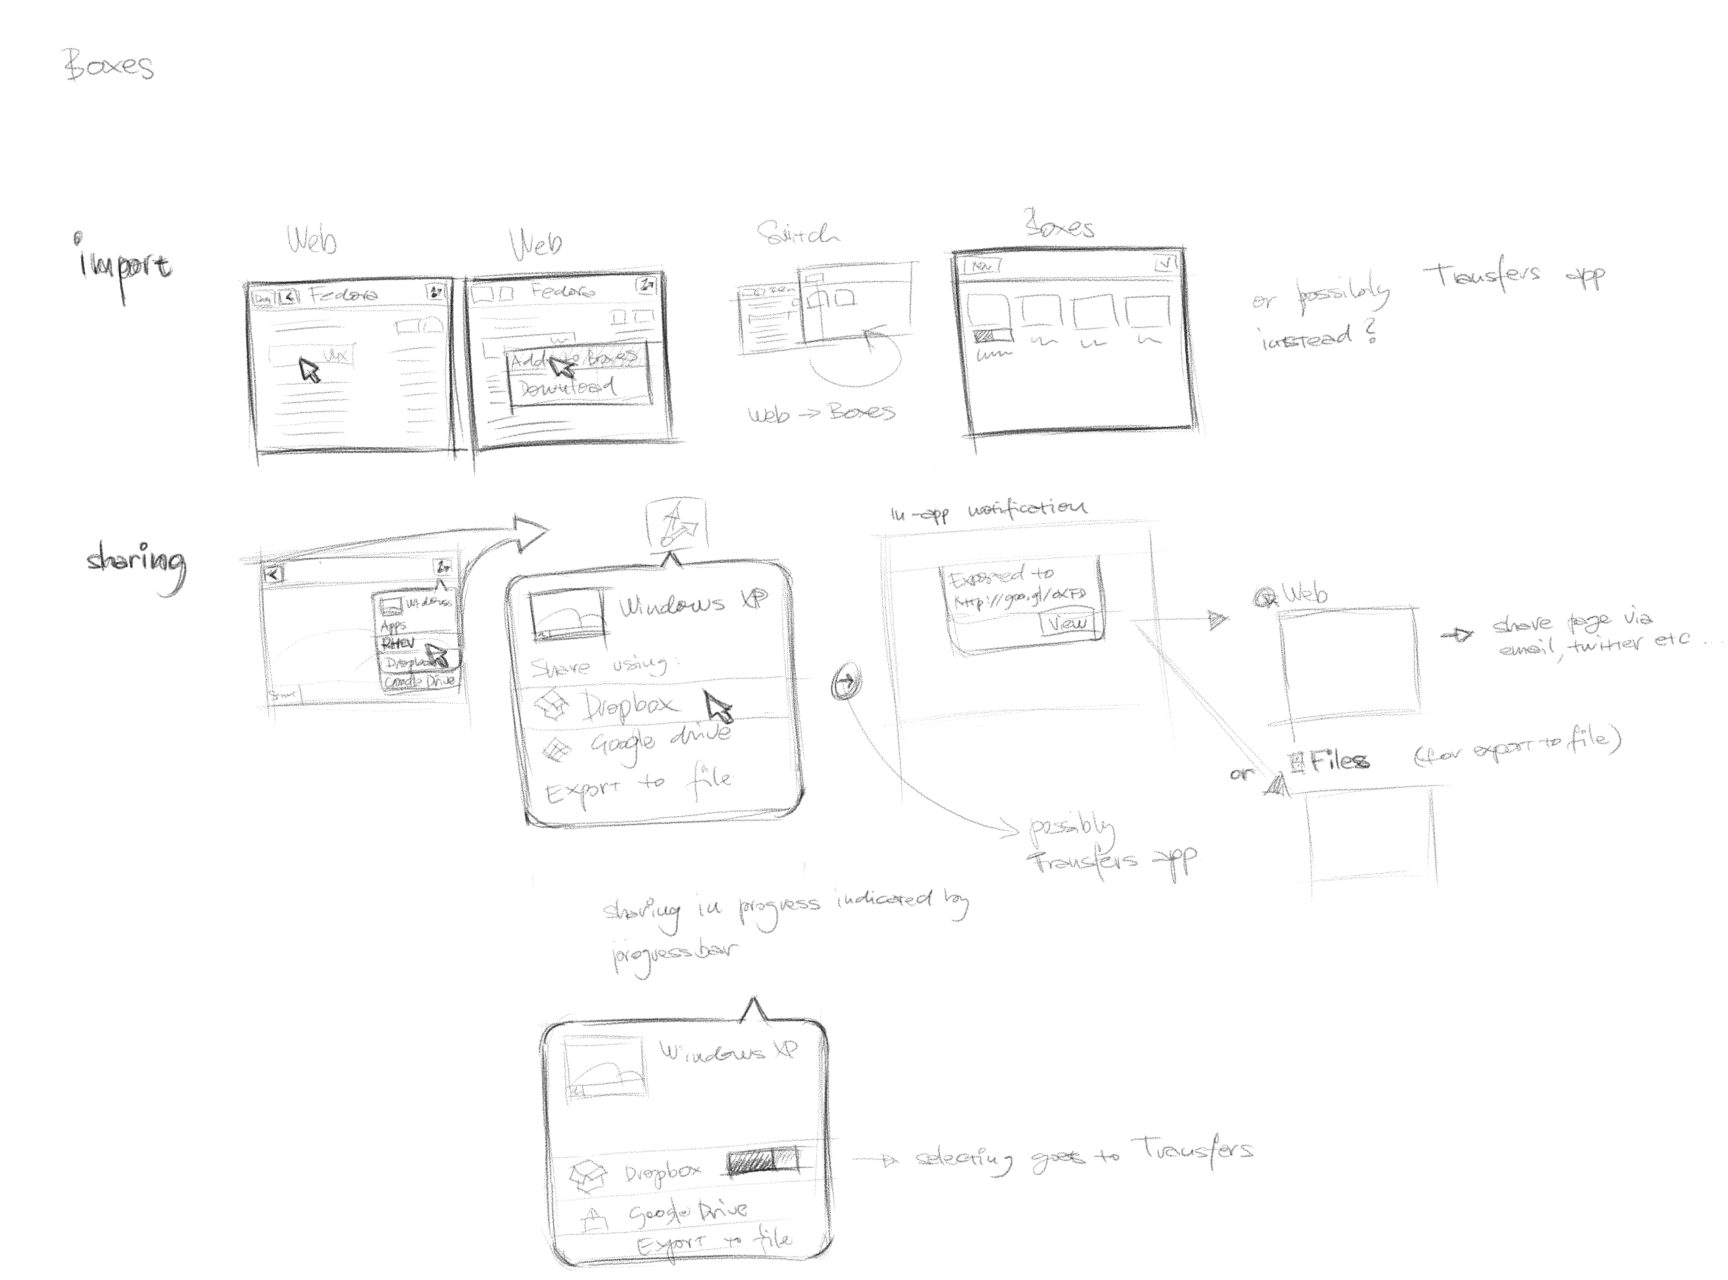 Boxes
import
Web
Fedora
Web
Fedora
Add to Boxes
Download
Switch
Web → Boxes
Boxes
or possibly Transfers app
instead?
sharing
Windows
Apps
RHEV
Dropbox
Google Drive
Windows XP
Share using:
Dropbox
Google drive
Export to file
In-app notification
Exported to
View
possibly
Transfers app
Web
share page via
email, twitter etc...
or
Files (for export to file)
sharing in progress indicated by
progressbar
Windows XP
Dropbox
Google Drive
Export to file
selecting goes to Transfers